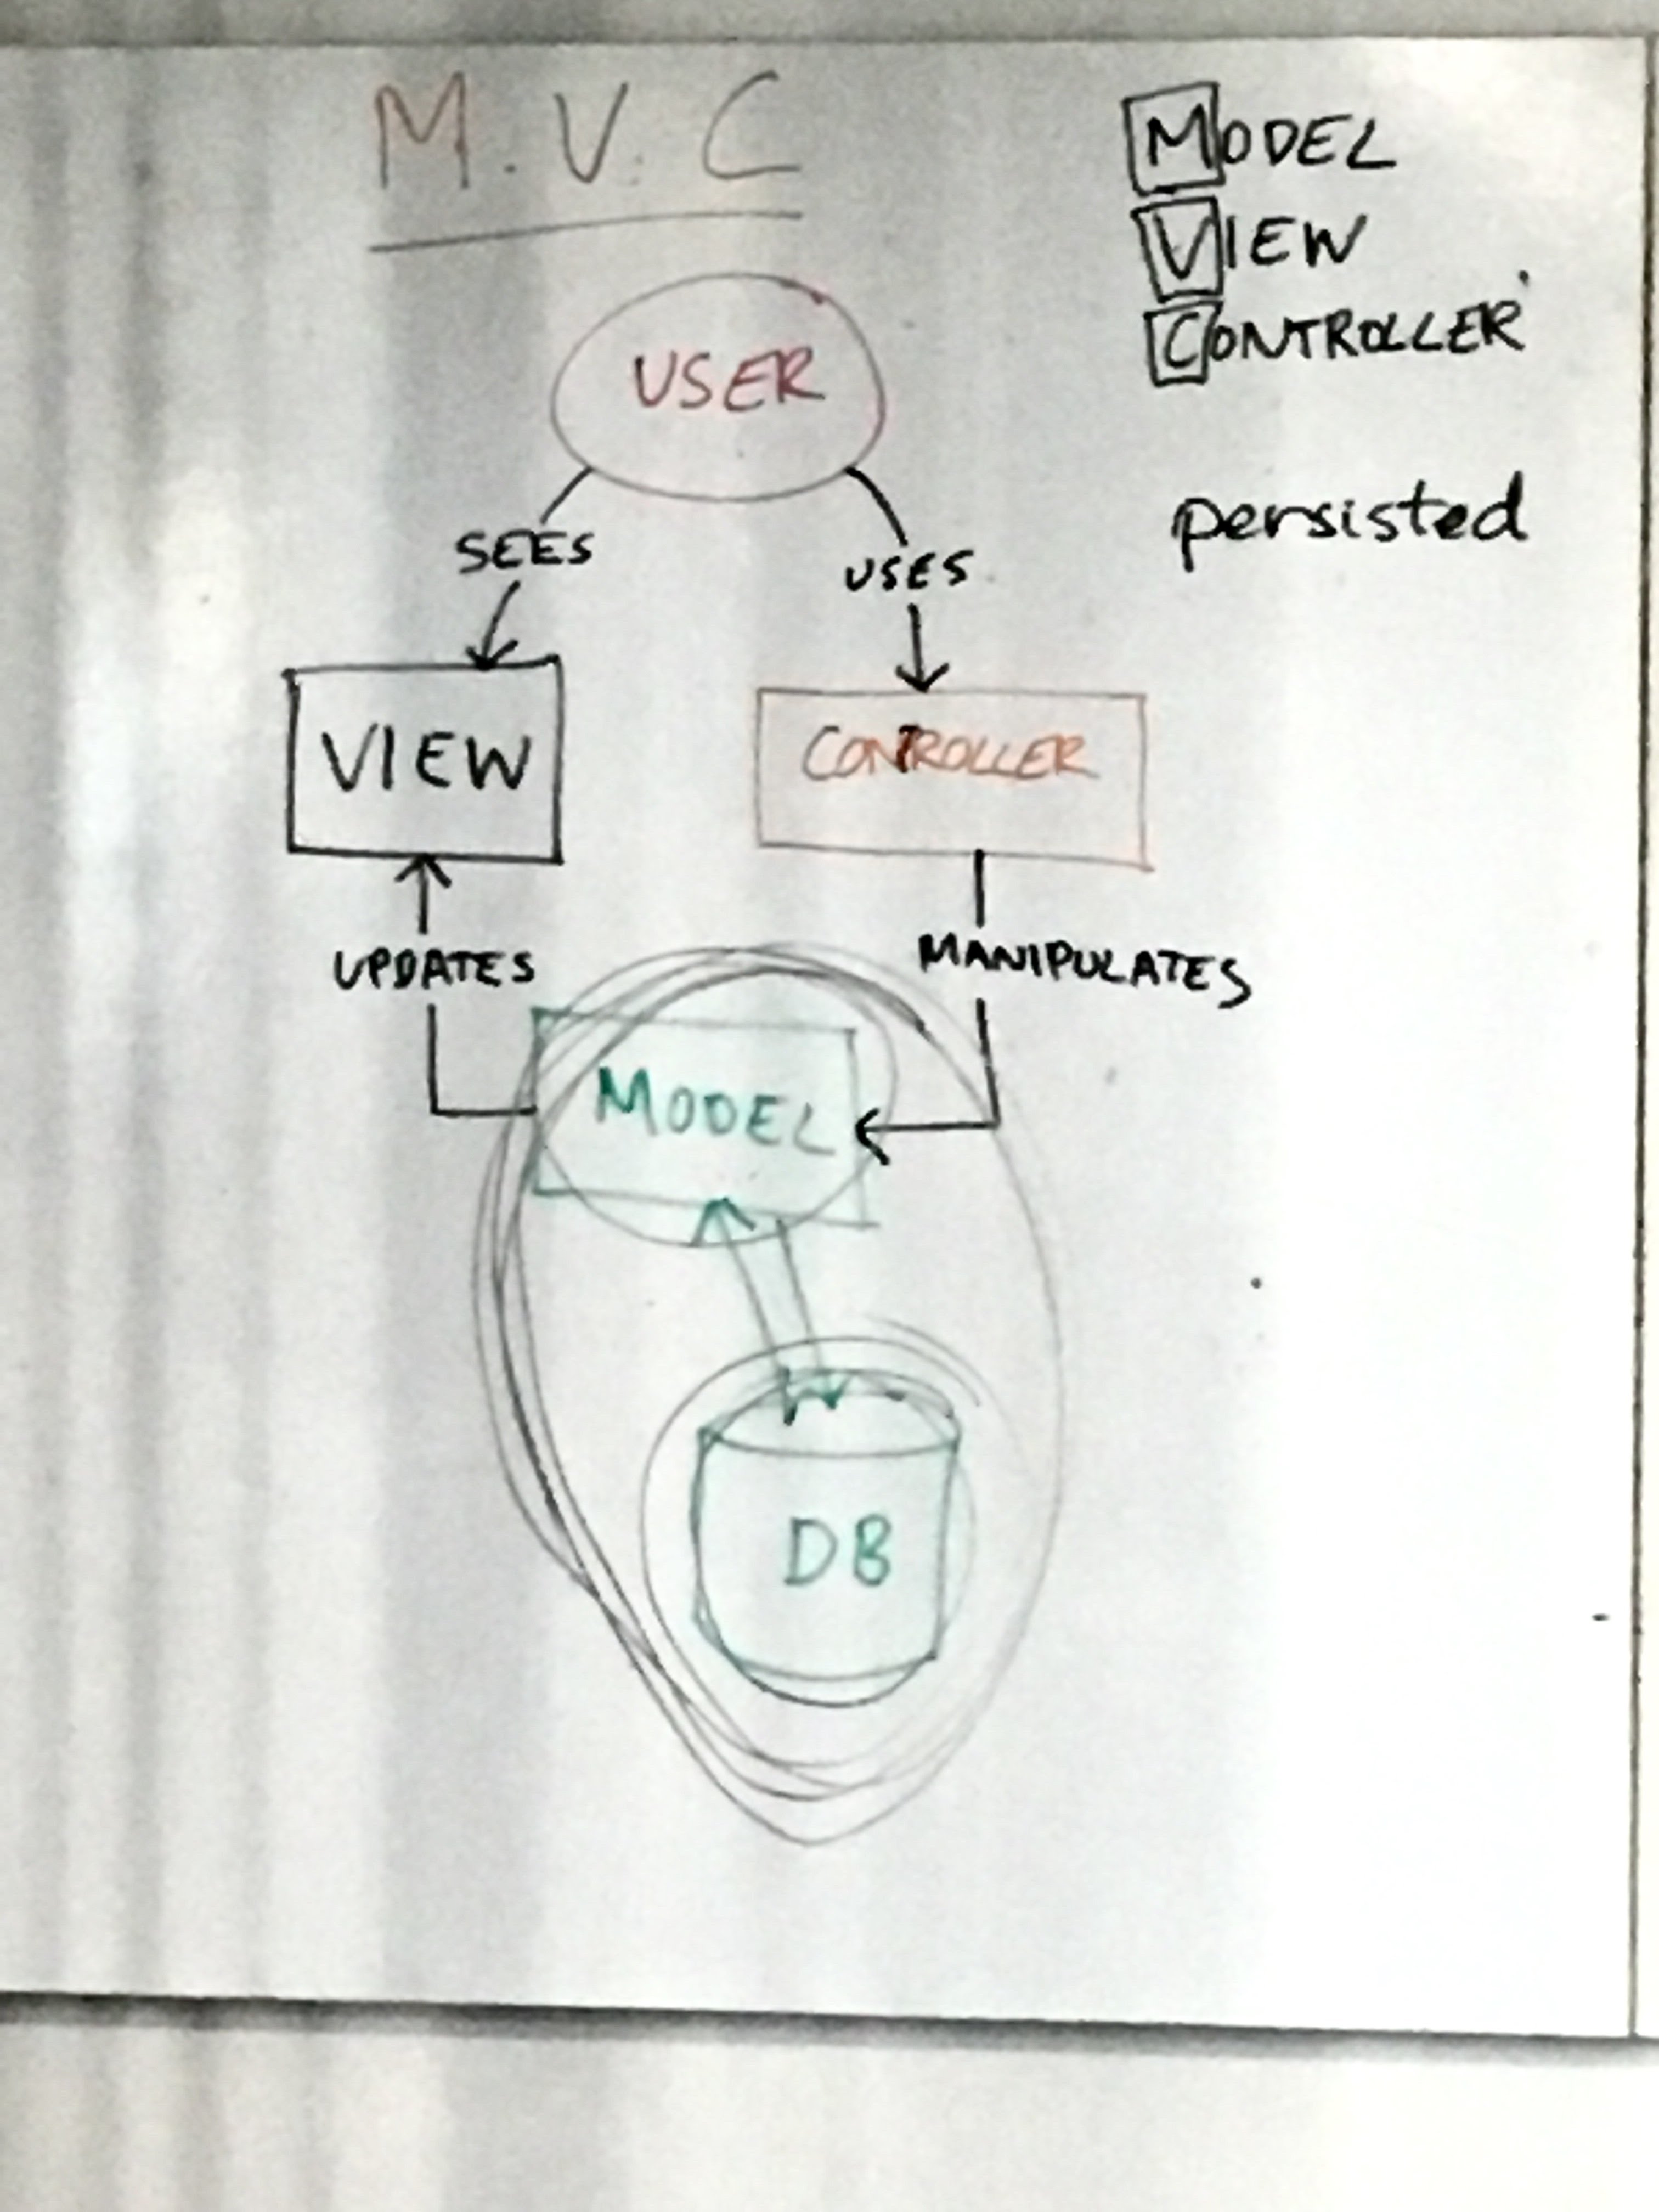 M.V.C
MODEL
VIEW
CONTROLLER
persisted
USER
SEES
USES
VIEW
CONTROLLER
UPDATES
MANIPULATES
MODEL
DB